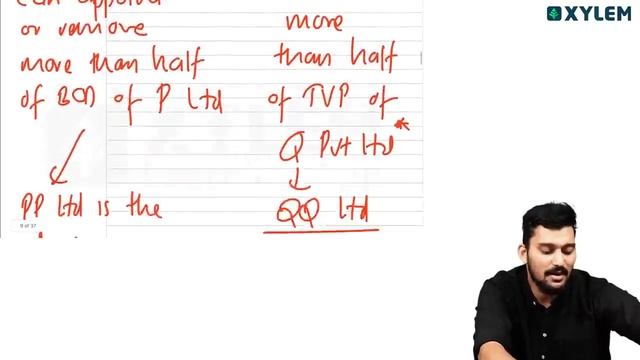 XYLEM
can
or remove
more than half
of BOD of P Ltd
PP Ltd is the
more
than half
of TVP of
Q Pvt Ltd *
QQ Ltd
9 of 37